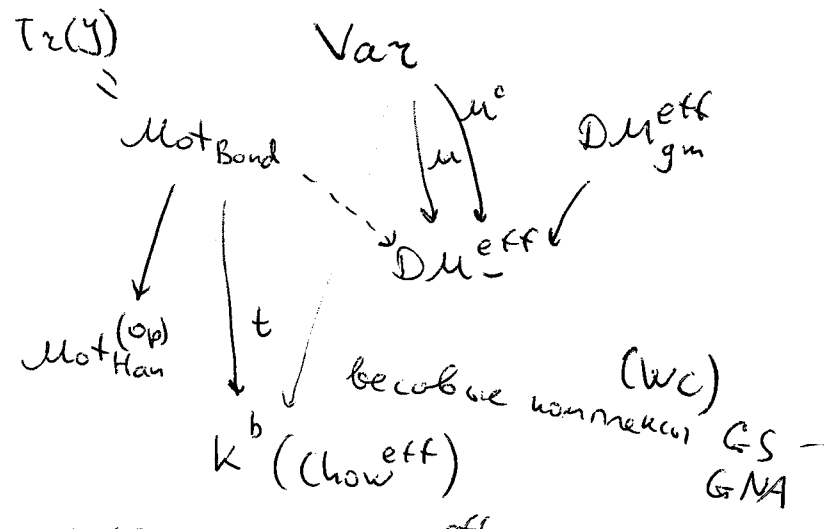 Tr(J)
Var
Mot_Bond
M
M^c
DM^eff_gm
DM_-^eff
Mot_Han^(op)
t
весовые комплексы (WC)
GS –
GNA
K^b(Chow^eff)
eff